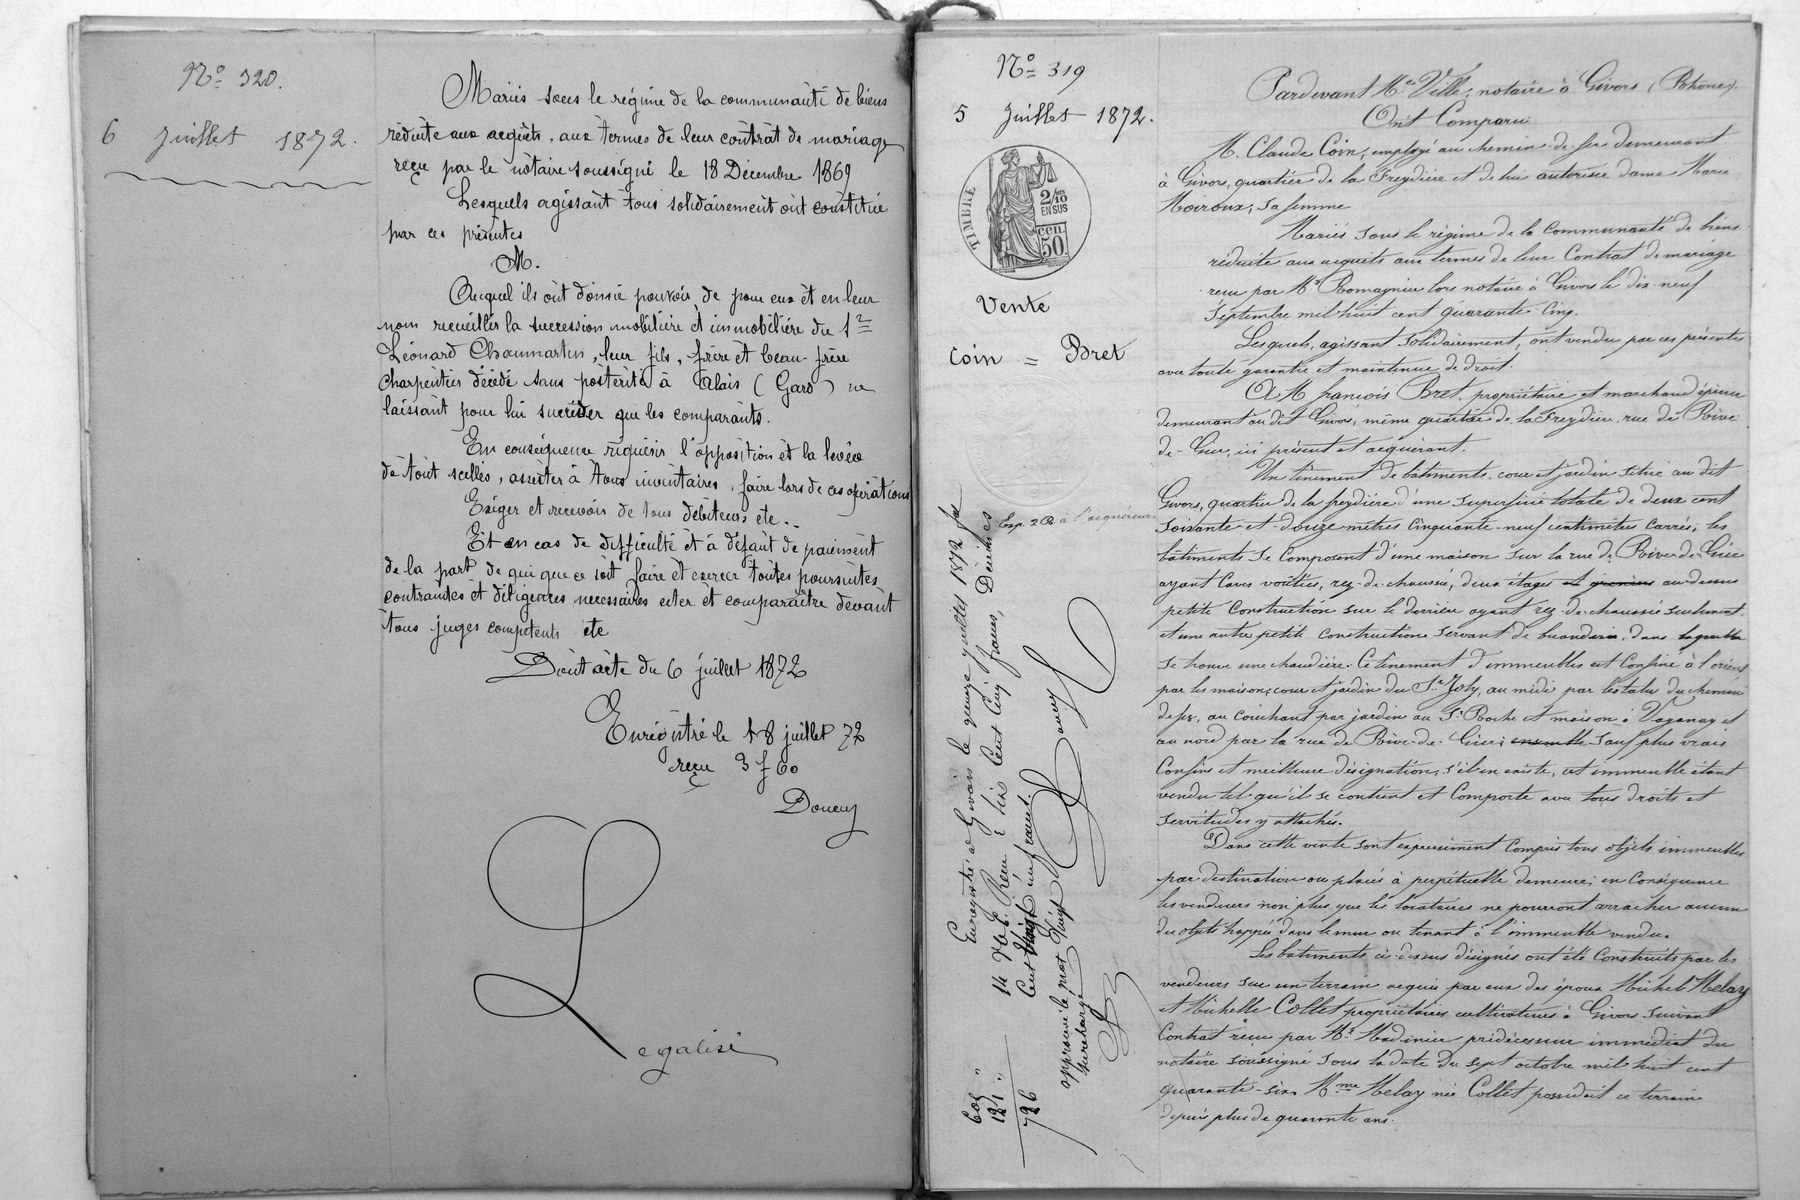 N° 320.
6 Juillet 1872.
Mariés sous le régime de la communauté de biens
réduite aux acquêts, aux termes de leur contrat de mariage
reçu par le notaire soussigné le 18 Décembre 1869
Lesquels agissant tous solidairement ont constitué
par ces présentes
M.
Auquel ils ont donné pouvoir de pour eux et en leur
nom recueillir la succession mobilière et immobilière du Sr
Léonard Chaumartin, leur fils, frère et beau-frère
charpentier décédé sans postérité à Alais (Gard) ne
laissant pour lui succéder que les comparants.
En conséquence réquérir l'opposition et la levée
de tout scellés, assister à tous inventaires, faire lors de ces opérations
Exiger et recevoir de tous débiteurs etc..
Et en cas de difficulté et à défaut de paiement
de la part de qui que ce soit faire et exercer toutes poursuites
contraintes et diligences nécessaires citer et comparaître devant
tous juges compétents etc
Dont acte du 6 juillet 1872
Enregistré le 18 juillet 72
reçu 3 f 60
Legalisé
N° 319
5 Juillet 1872.
TIMBRE
2/10
EN SUS
50
Vente
Coin = Bret
Exp. 2 à l'acquéreur
Enregistré à Givors le quinze juillet 1872 fol
14 V° c 6. Reçu Six Cent Cinq francs, Décimes
Cent Vingt un francs.
approuvé le mot Vingt
surchargé
605 "
121 "
726
Pardevant Me Ville, notaire à Givors (Rhône).
Ont Comparu
M. Claude Coin, employé au chemin de fer demeurant
à Givors, quartier de la Freydière et de lui autorisée dame Marie
sa femme
Mariés sous le régime de la Communauté de biens
réduite aux acquets aux termes de leur Contrat de mariage
reçu par Me Romagnier lors notaire à Givors le dix-neuf
Septembre mil huit cent quarante-Cinq.
Lesquels, agissant Solidairement, ont vendu par ces présentes
avec toute garantie et maintenue de droit.
A M François Bret, propriétaire et marchand épicier
demeurant au dit Givors, même quartier de la Freydière, rue de Rive
de-Gier, ici présent et acquérant.
Un tènement de bâtiments, cour et jardin situé au dit
Givors, quartier de la freydière d'une superficie totale de deux cent
Soixante-et-douze mètres cinquante-neuf centimètres carrés; les
bâtiments se Composent d'une maison sur la rue de Rive-de-Gier
ayant Caves voûtées, rez-de-chaussée, deux étages et greniers au-dessus
petite Construction sur le derrière ayant rez-de-chaussée seulement,
et une autre petite construction servant de buanderie, dans laquelle
se trouve une chaudière. Ce tènement d'immeubles est Confiné à l'orient
par les maison, cour et jardin du Sr Joly, au midi par les talus du chemin
de fer, au Couchant par jardin au Sr Roche et maison à Vaganay et
au nord par la rue de Rive-de-Gier; ensemble sauf plus vrais
Confins et meilleure désignation, s'il en existe, cet immeuble étant
vendu tel qu'il se contient et Comporte avec tous droits et
servitudes y attachés.
Dans cette vente sont expressément Compris tous objets immeubles
par destination ou placés à perpétuelle demeure; en Conséquence
les vendeurs non plus que les locataires ne pourront arracher aucun
des objets frappés dans le mur ou tenant à l'immeuble vendu.
Les bâtiments ci-dessus désignés ont été Construits par les
vendeurs sur un terrain acquis par eux des époux Michel Melay
et Michelle Collet propriétaires cultivateurs à Givors suivant
Contrat reçu par Me Madinier prédécesseur immédiat du
notaire soussigné sous la date du sept octobre mil huit cent
quarante-six Mme Melay née Collet possédait ce terrain
depuis plus de quarante ans.